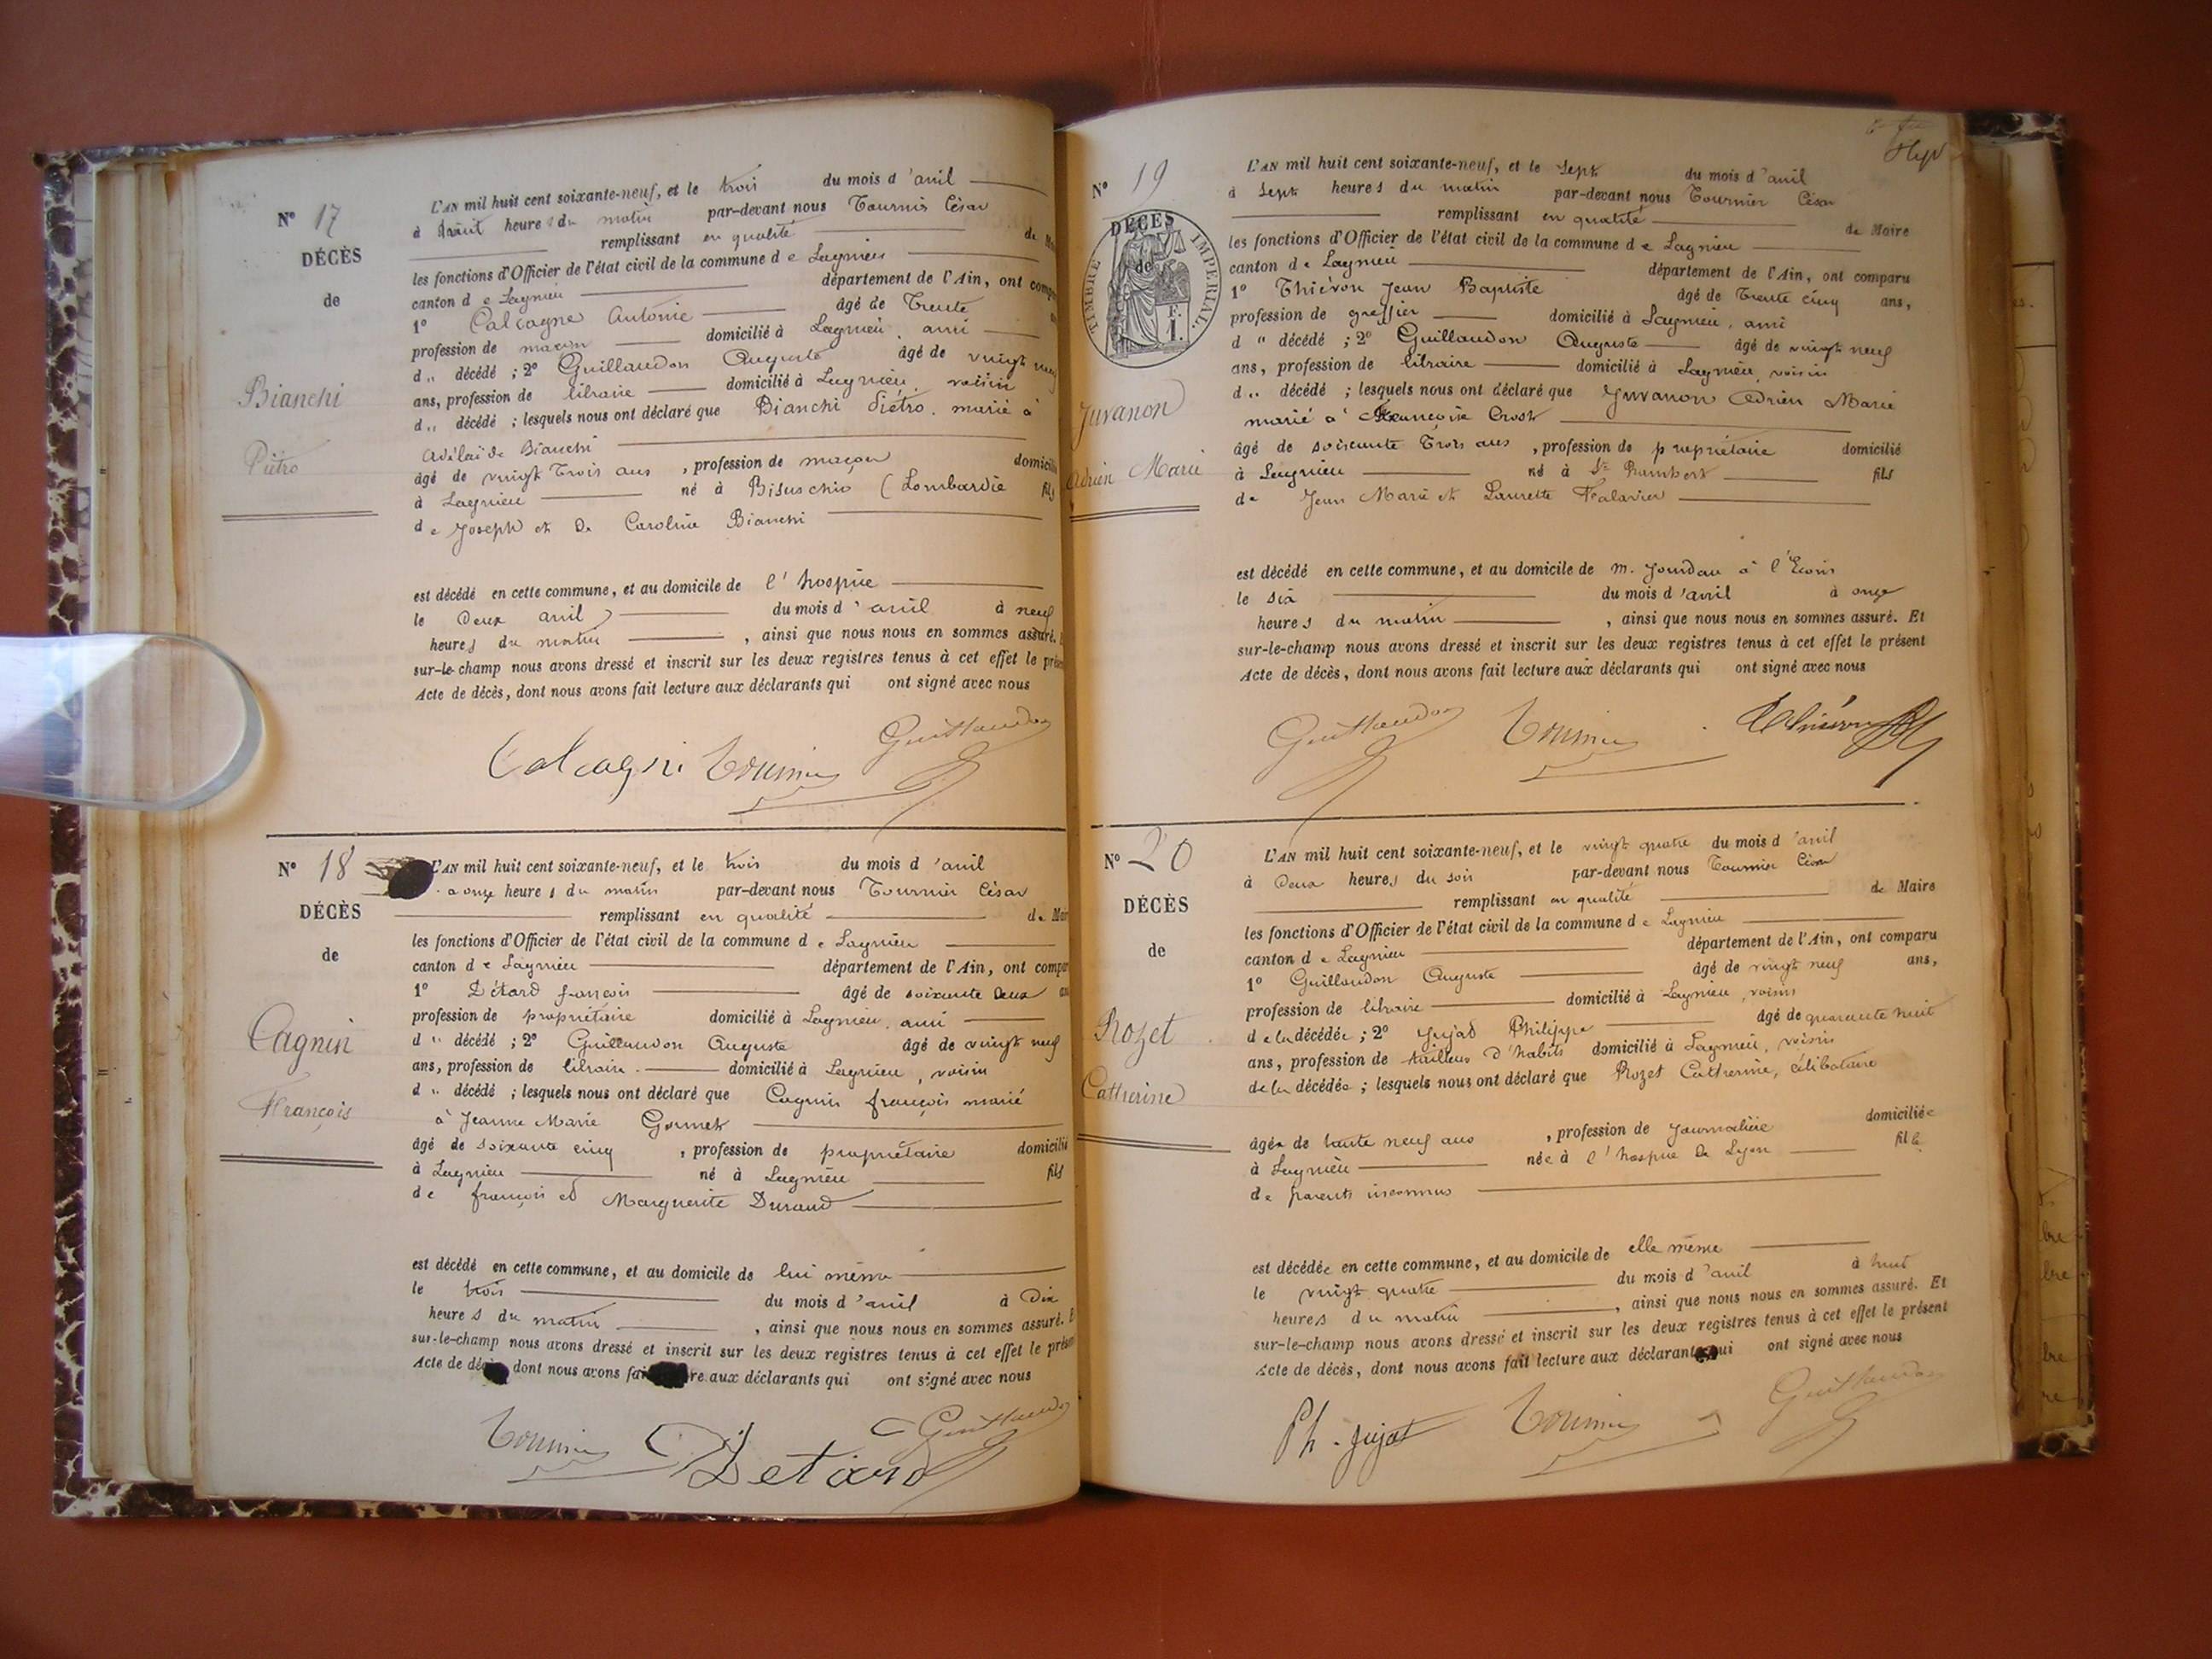 N° 17
DÉCÈS
de
Bianchi
Piétro
L'AN mil huit cent soixante-neuf, et le trois du mois d'avril
à huit heures du matin par-devant nous Tournier César
remplissant en qualité de
les fonctions d'Officier de l'état civil de la commune de Lagnieu
canton de Lagnieu département de l'Ain, ont
1° Calcagne Antoine âgé de Trente
profession de maçon domicilié à Lagnieu, ami
d" décédé ; 2° Guillaudon Auguste âgé de vingt neuf
ans, profession de libraire domicilié à Lagnieu, voisin
d" décédé ; lesquels nous ont déclaré que Bianchi Piétro, marié à
Adélaïde Bianchi
âgé de vingt Trois ans , profession de maçon domicilié
à Lagnieu né à Bisuschio (Lombardie fils
de Joseph et De Caroline Bianchi
est décédé en cette commune, et au domicile de l'hospice
le Deux avril du mois d'avril à neuf
heures du matin , ainsi que nous nous en sommes assuré.
sur-le-champ nous avons dressé et inscrit sur les deux registres tenus à cet effet le
Acte de décès, dont nous avons fait lecture aux déclarants qui ont signé avec nous
Calcagni Tournier Guillaudon
N° 18
DÉCÈS
de
Cagnin
François
L'AN mil huit cent soixante-neuf, et le trois du mois d'avril
à onze heures du matin par-devant nous Tournier César
remplissant en qualité de
les fonctions d'Officier de l'état civil de la commune de Lagnieu
canton de Lagnieu département de l'Ain, ont
1° Détard françois âgé de soixante Deux
profession de propriétaire domicilié à Lagnieu, ami
d" décédé ; 2° Guillaudon Auguste âgé de vingt neuf
ans, profession de libraire domicilié à Lagnieu, voisin
d" décédé ; lesquels nous ont déclaré que Cagnin françois marié
à Jeanne Marie Gonnet
âgé de soixante cinq , profession de propriétaire domicilié
à Lagnieu né à Lagnieu fils
de françois et Marguerite Durand
est décédé en cette commune, et au domicile de lui même
le trois du mois d'avril à Dix
heures du matin , ainsi que nous nous en sommes assuré.
sur-le-champ nous avons dressé et inscrit sur les deux registres tenus à cet effet le
Acte de dont nous avons aux déclarants qui ont signé avec nous
Tournier Detard Guillaudon
N° 19
DÉCÈS
de
TIMBRE IMPERIAL
Juvanon
Adrien Marie
L'AN mil huit cent soixante-neuf, et le Sept du mois d'avril
à Sept heures du matin par-devant nous Tournier César
remplissant en qualité de Maire
les fonctions d'Officier de l'état civil de la commune de Lagnieu
canton de Lagnieu département de l'Ain, ont comparu
1° Thiévon Jean Baptiste âgé de Trente cinq ans,
profession de greffier domicilié à Lagnieu, ami
d" décédé ; 2° Guillaudon Auguste âgé de vingt neuf
ans, profession de libraire domicilié à Lagnieu, voisin
d" décédé ; lesquels nous ont déclaré que Juvanon Adrien Marie
marié à Françoise Crost
âgé de soixante Trois ans , profession de propriétaire domicilié
à Lagnieu né à St Rambert fils
de Jean Marie et Laurette Falavier
est décédé en cette commune, et au domicile de m. Jourdan à l'Ecous
le six du mois d'avril à onze
heures du matin , ainsi que nous nous en sommes assuré. Et
sur-le-champ nous avons dressé et inscrit sur les deux registres tenus à cet effet le présent
Acte de décès, dont nous avons fait lecture aux déclarants qui ont signé avec nous
Guillaudon Tournier Thiévon
N° 20
DÉCÈS
de
Rozet
Catherine
L'AN mil huit cent soixante-neuf, et le vingt quatre du mois d'avril
à Deux heures du soir par-devant nous Tournier César
remplissant en qualité de Maire
les fonctions d'Officier de l'état civil de la commune de Lagnieu
canton de Lagnieu département de l'Ain, ont comparu
1° Guillaudon Auguste âgé de vingt neuf ans,
profession de libraire domicilié à Lagnieu, voisin
de la décédée ; 2° Jujat Philippe âgé de quarante huit
ans, profession de tailleur d'habits domicilié à Lagnieu, voisin
de la décédée ; lesquels nous ont déclaré que Rozet Catherine, célibataire
âgée de trente neuf ans , profession de Journalière domiciliée
à Lagnieu née à l'hospice De Lyon fille
de parents inconnus
est décédée en cette commune, et au domicile de elle même
le vingt quatre du mois d'avril à huit
heures du matin , ainsi que nous nous en sommes assuré. Et
sur-le-champ nous avons dressé et inscrit sur les deux registres tenus à cet effet le présent
Acte de décès, dont nous avons fait lecture aux déclarants qui ont signé avec nous
Ph. Jujat Tournier Guillaudon